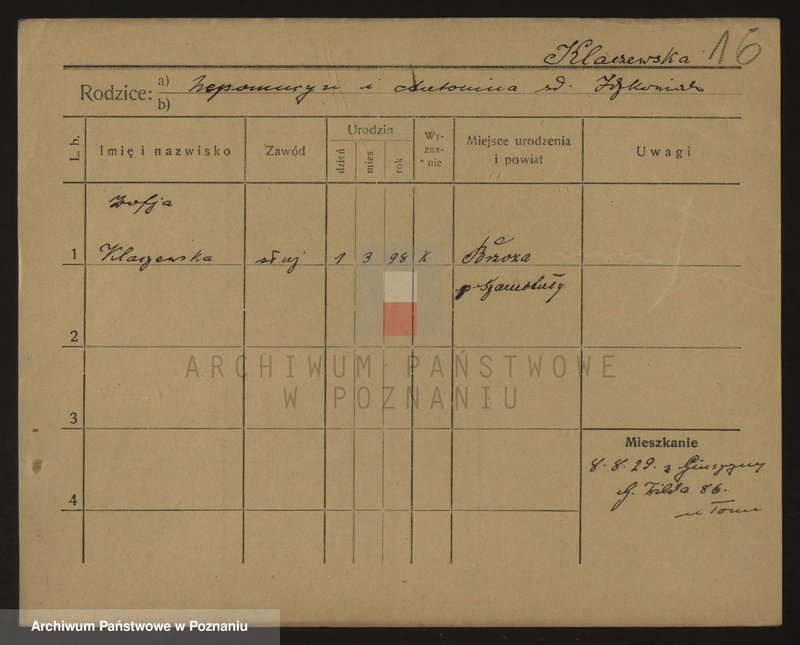 Klaczewska 16
Rodzice: a) Nepomucyn i Antonina zd.
b)
L. b. Imię i nazwisko Zawód Urodzin dzień mies. rok Wy-zna-nie Miejsce urodzenia i powiat Uwagi
Zofja
1 Klaczewska służ 1 3 98 k Brzoza
p. Szamotuły
2
ARCHIWUM PAŃSTWOWE
W POZNANIU
3
Mieszkanie
8.8.29. z
G. Wilda 86.
4
Archiwum Państwowe w Poznaniu